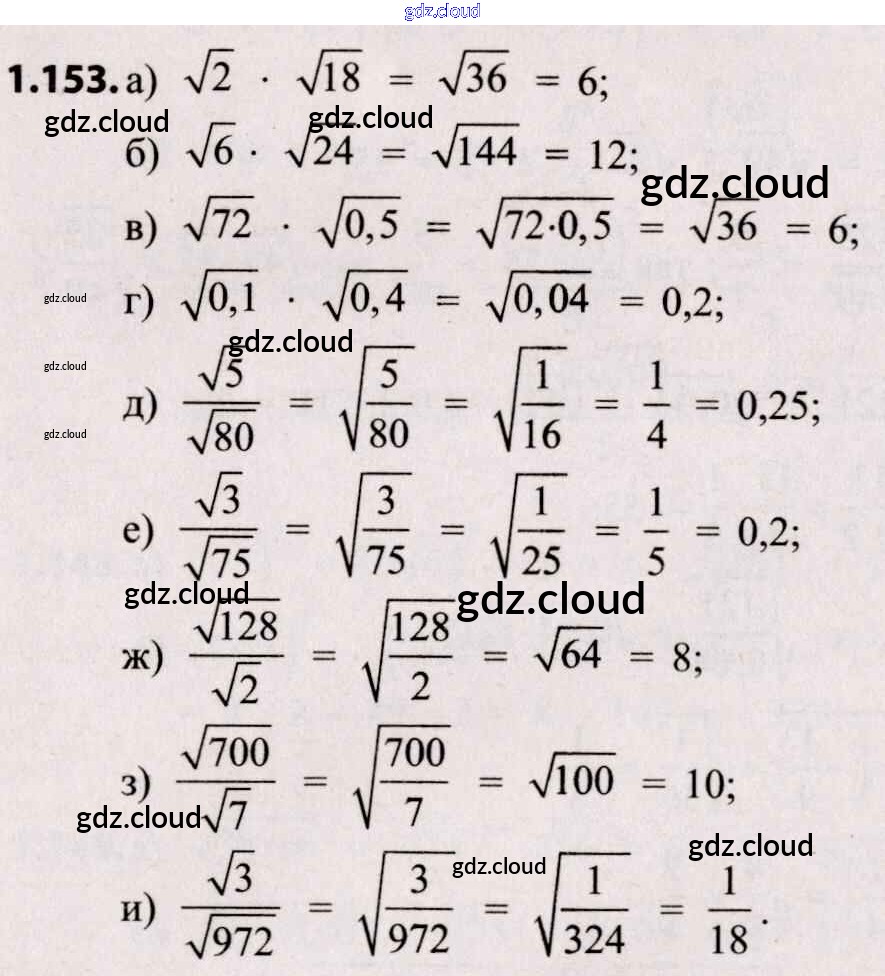 gdz.cloud
1.153. а) √2 · √18 = √36 = 6;
gdz.cloud gdz.cloud
б) √6 · √24 = √144 = 12;
gdz.cloud
в) √72 · √0,5 = √72·0,5 = √36 = 6;
gdz.cloud г) √0,1 · √0,4 = √0,04 = 0,2;
gdz.cloud
gdz.cloud
д) √5/√80 = √(5/80) = √(1/16) = 1/4 = 0,25;
gdz.cloud
е) √3/√75 = √(3/75) = √(1/25) = 1/5 = 0,2;
gdz.cloud gdz.cloud
ж) √128/√2 = √(128/2) = √64 = 8;
з) √700/√7 = √(700/7) = √100 = 10;
gdz.cloud
gdz.cloud gdz.cloud
и) √3/√972 = √(3/972) = √(1/324) = 1/18.